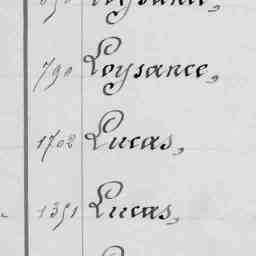 790 Loysance,
1702 Lucas,
1351 Lucas,